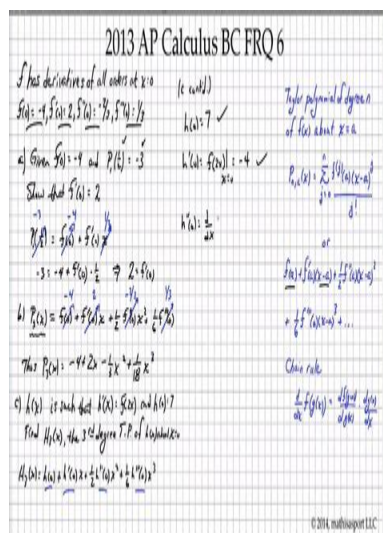 2013 AP Calculus BC FRQ 6
f has derivatives of all orders at x=0
f(0) = -4, f'(0) = 2, f''(0) = -2/3, f'''(0) = 1/3
a) Given f(0) = -4 and P₁(½) = -3
Show that f'(0) = 2
-3 -4 1/2
P₁(½) = f(0) + f'(0) x
-3 = -4 + f'(0)·½ ⇒ 2 = f'(0)
-4 2 -2/3 1/3
b) P₃(x) = f(0) + f'(0)x + ½f''(0)x² + ⅙f'''(0)
Thus P₃(x) = -4+2x - ⅓x² + 1/18 x³
c) h(x) is such that h'(x) = f(2x) and h(0)=7
Find H₃(x), the 3rd degree T.P. of h(x) about x=0
H₃(x) = h(0) + h'(0)x + ½h''(0)x² + ⅙h'''(0)x³
(c cont'd)
h(0) = 7 ✓
h'(0) = f(2x)| = -4 ✓
x=0
h''(0) = d/dx
Taylor polynomial of degree n
of f(x) about x=a
Pₙ,ₐ(x) = Σ f⁽ʲ⁾(a)(x-a)ʲ
j!
or
f(a) + f'(a)(x-a) + ½f''(a)(x-a)²
+ ⅙f'''(a)(x-a)³ + ...
Chain rule
d/dx f(g(x)) = df(g(x))/dg(x) · dg(x)/dx
© 2014, mathisasport LLC